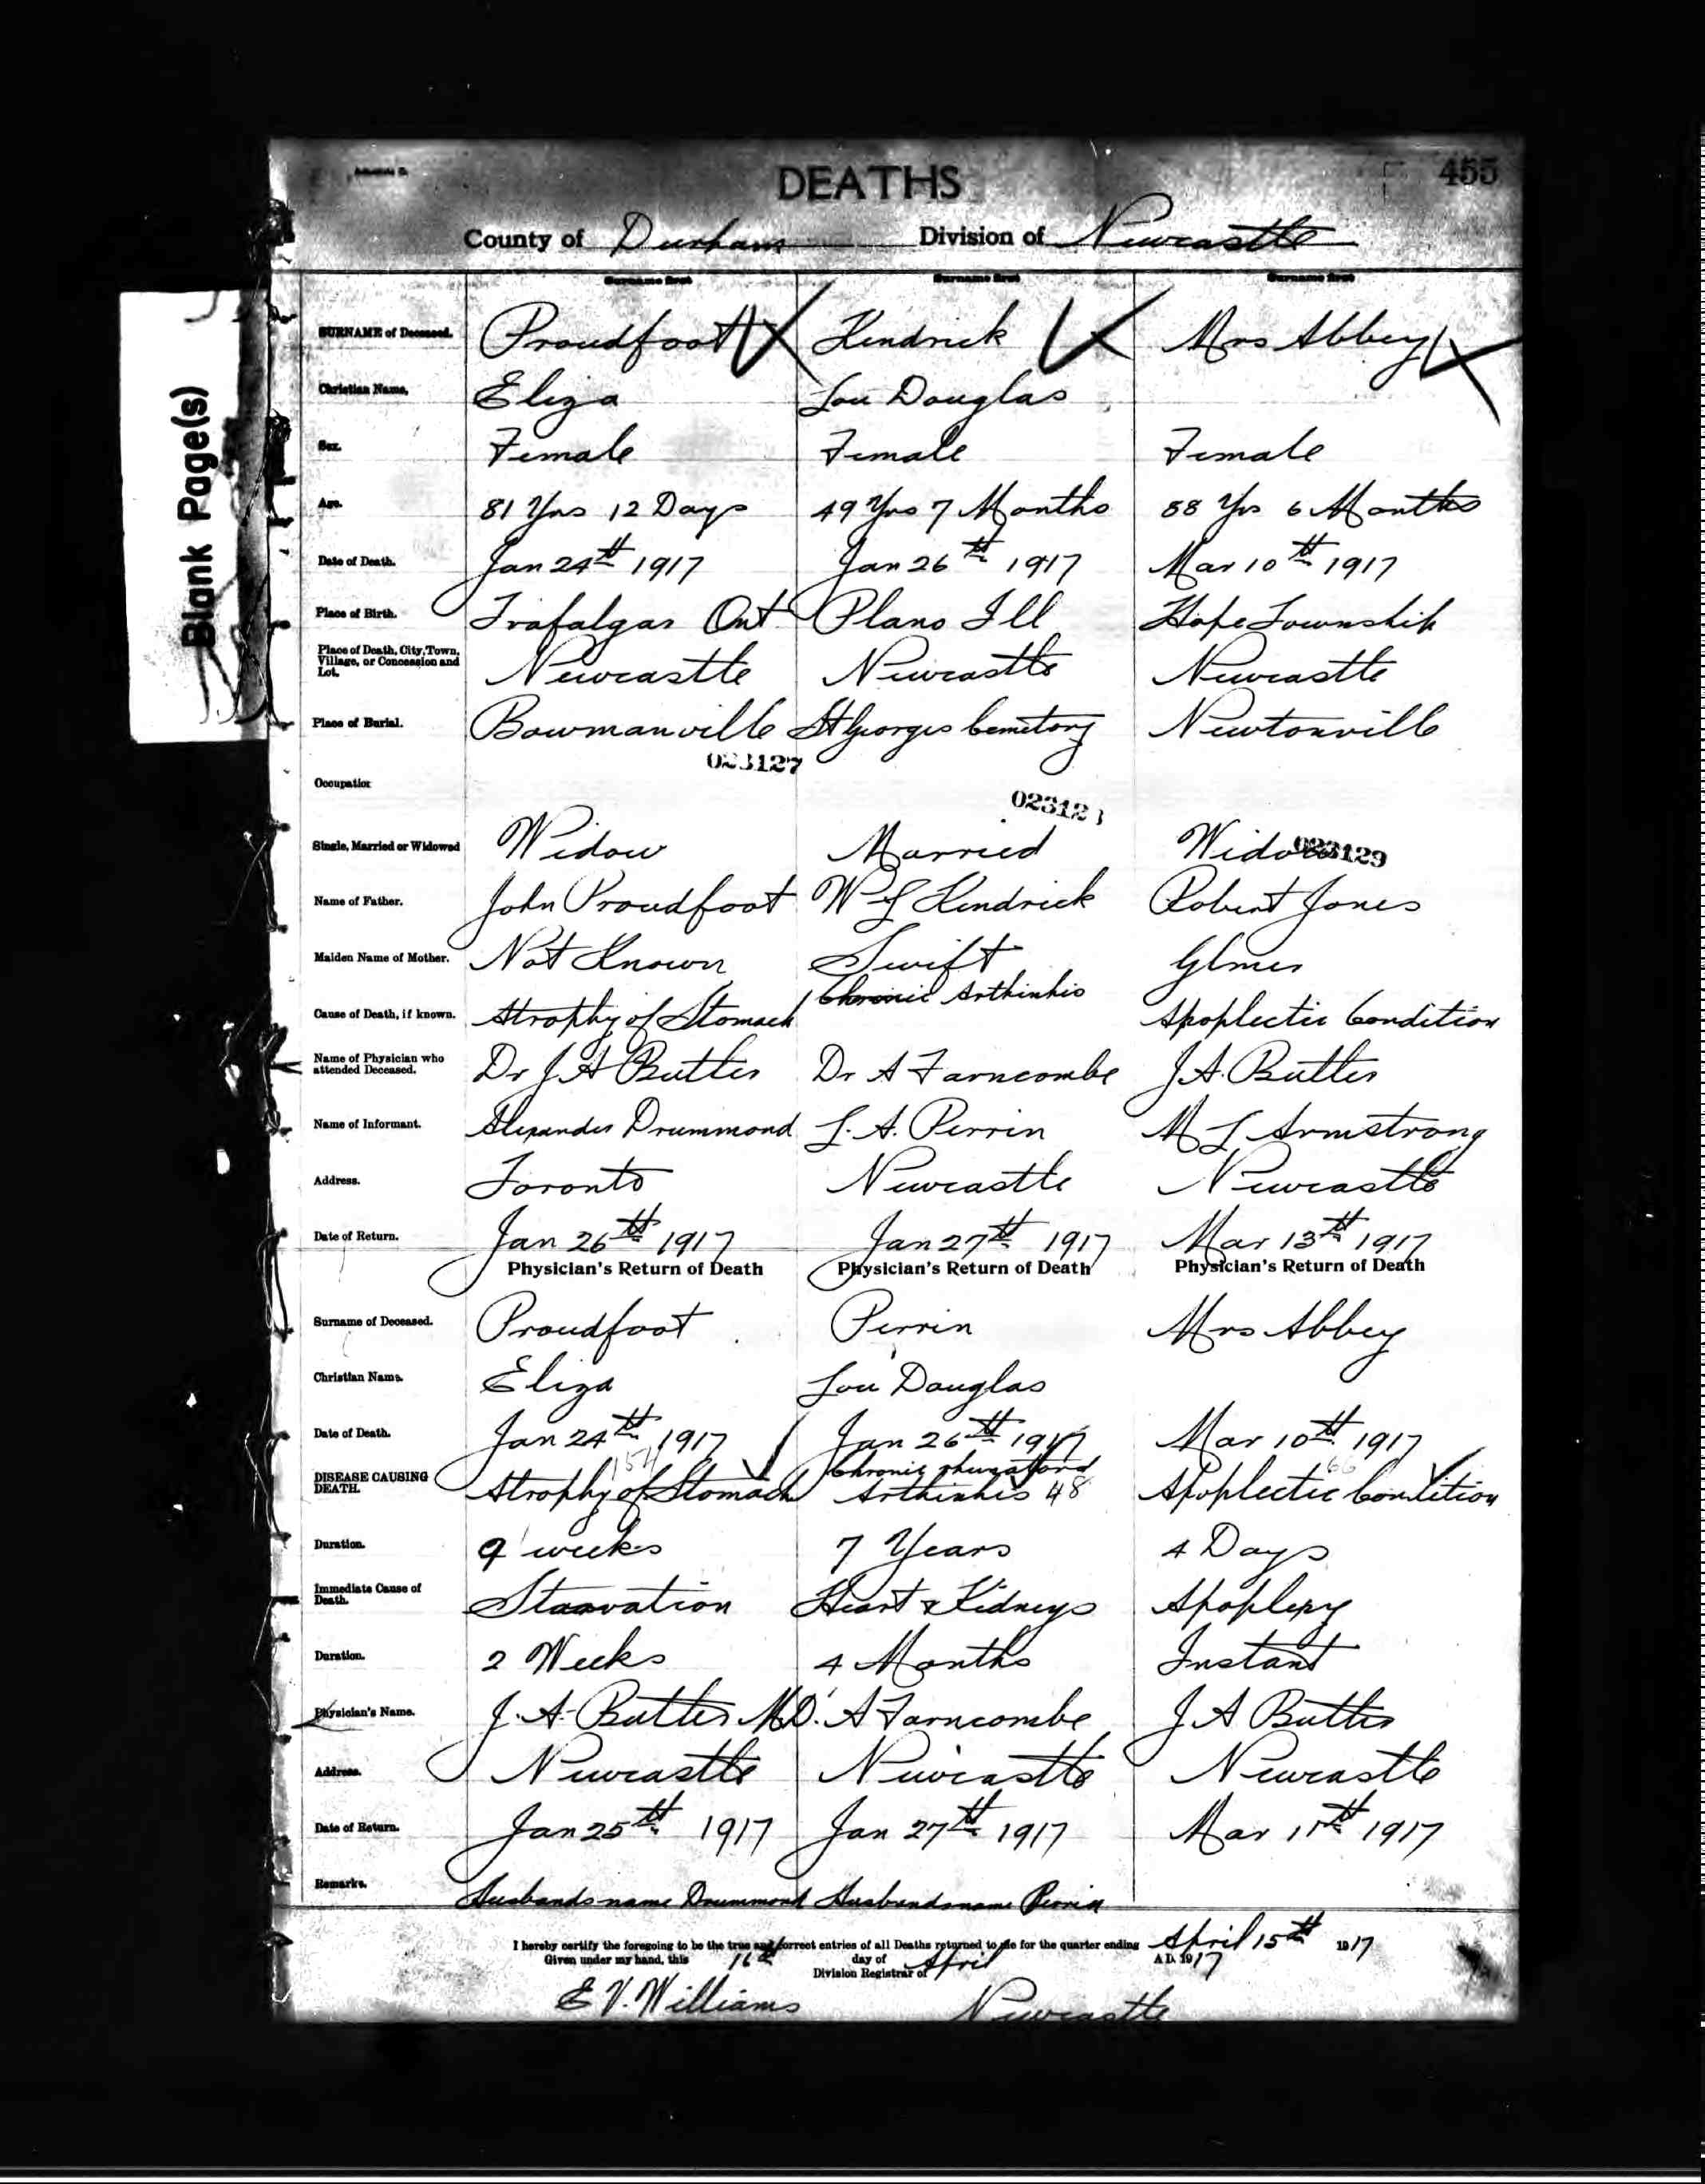 DEATHS
455
County of Durham Division of Newcastle
Blank Page(s)
Surname first Surname first Surname first
SURNAME of Deceased. Proudfoot Kendrick Mrs Abbey
Christian Name. Eliza Lou Douglas
Sex. Female Female Female
Age. 81 Yrs 12 Days 49 Yrs 7 Months 88 Yrs 6 Months
Date of Death. Jan 24th 1917 Jan 26th 1917 Mar 10th 1917
Place of Birth. Trafalgar Ont Plano Ill Hope Township
Place of Death, City, Town, Newcastle Newcastle Newcastle
Village, or Concession and
Lot.
Place of Burial. Bowmanville St Georges Cemetory Newtonville
023127
Occupation
02312
Single, Married or Widowed Widow Married Widow 023129
Name of Father. John Proudfoot W L Kendrick Robert Jones
Maiden Name of Mother. Not Known Swift
Cause of Death, if known. Atrophy of Stomach Chronic Arthinhis Apoplectic Condition
Name of Physician who Dr J A Butler Dr A Farncombe J.A. Butler
attended Deceased.
Name of Informant. Alexander Drummond L. A. Perrin M L Armstrong
Address. Toronto Newcastle Newcastle
Date of Return. Jan 26th 1917 Jan 27th 1917 Mar 13th 1917
Physician's Return of Death Physician's Return of Death Physician's Return of Death
Surname of Deceased. Proudfoot Perrin Mrs Abbey
Christian Name. Eliza Lou Douglas
Date of Death. Jan 24th 1917 Jan 26th 1917 Mar 10th 1917
Chronic 66
DISEASE CAUSING Atrophy of Stomach Arthinhis 48 Apoplectic Condition
DEATH.
Duration. 9 weeks 7 Years 4 Days
Immediate Cause of Starvation Heart & Kidneys Apoplexy
Death.
Duration. 2 Weeks 4 Months Instant
Physician's Name. J. A. Butler M.D. A Farncombe J A Butler
Address. Newcastle Newcastle Newcastle
Date of Return. Jan 25th 1917 Jan 27th 1917 Mar 11th 1917
Remarks. Husbands name Drummond Husbands name Perrin
I hereby certify the foregoing to be the true and correct entries of all Deaths returned to me for the quarter ending April 15th 1917
Given under my hand, this 16th day of April A D. 1917
Division Registrar of
E V. Williams Newcastle